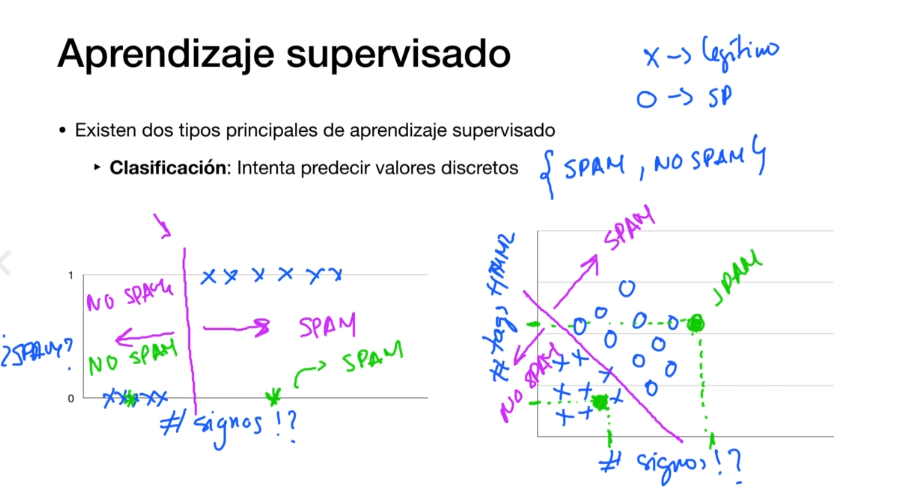 Aprendizaje supervisado
x → legítimo
O → SP
• Existen dos tipos principales de aprendizaje supervisado
‣ Clasificación: Intenta predecir valores discretos
{ SPAM, NO SPAM }
1
NO SPAM
SPAM
¿SPAM?
NO SPAM
SPAM
0
# signos !?
SPAM
SPAM
# tags HTML
NO SPAM
# signos !?